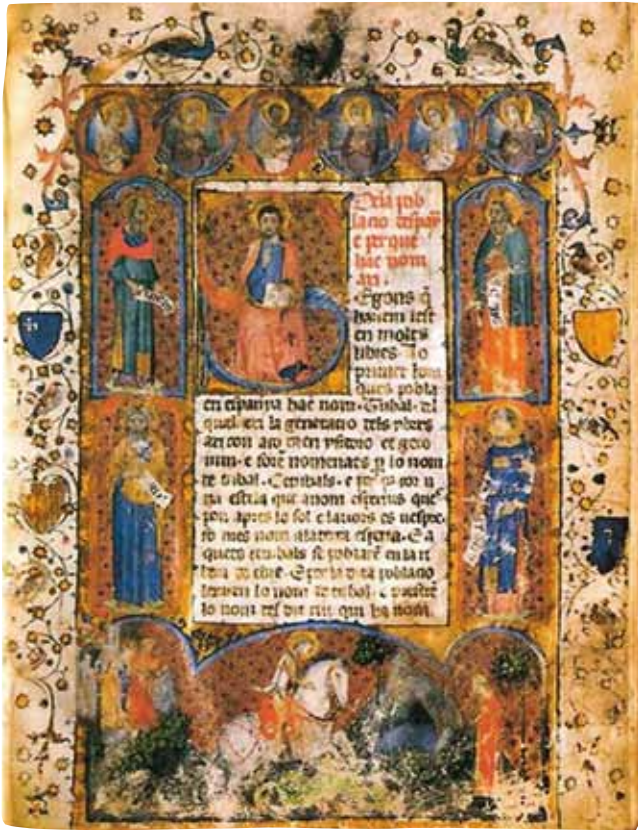 De la pob
lacio despay
e perque
hac nom
axi.
Egons q̄
havem lest
en molts
libres lo
primer hom
ques pobla
en espanya hac nom Tubal del
qual exi la generacio dels ybers
axi con aço dien ysidoro et gero
nim e forē nomenats p lo nom
de tubal Cetubals e
na estela que anom esperus que
pon apres lo sol e lavors es vespre
fo mes nom alaterra espera E a
quests cetubals se poblarē en la ri
bera de ebre E per la dita poblacio
lo nom de tubal e
lo nom del dit riu qui ha nom